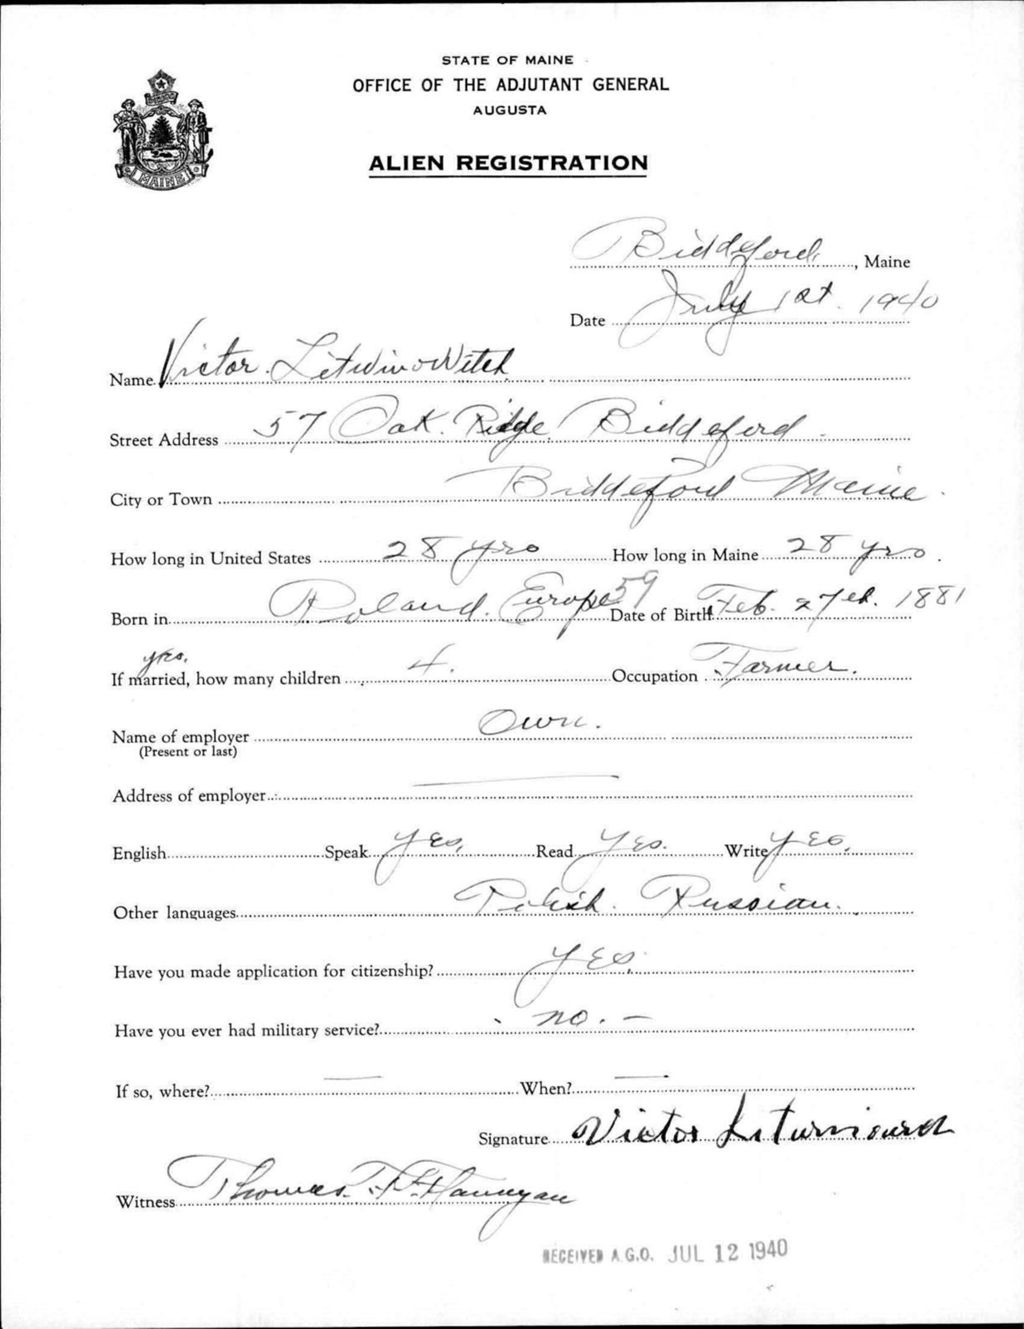 STATE OF MAINE
OFFICE OF THE ADJUTANT GENERAL
AUGUSTA
MAINE
ALIEN REGISTRATION
Biddeford, Maine
Date July 1st. 1940
Name Victor Litwinowitch
Street Address 57 Oak Ridge, Biddeford
City or Town Biddeford Maine
How long in United States 28 yrs How long in Maine 28 yrs.
Born in Poland. Europe 59 Date of Birth Feb. 27th. 1881
yes.
If married, how many children 4. Occupation Farmer.
Name of employer Own.
(Present or last)
Address of employer
English Speak yes. Read yes. Write yes.
Other languages Polish. Russian.
Have you made application for citizenship? Yes.
Have you ever had military service? no. —
If so, where? — When? —
Signature Victor
Witness Thomas F. Flannagan
RECEIVED A.G.O. JUL 12 1940